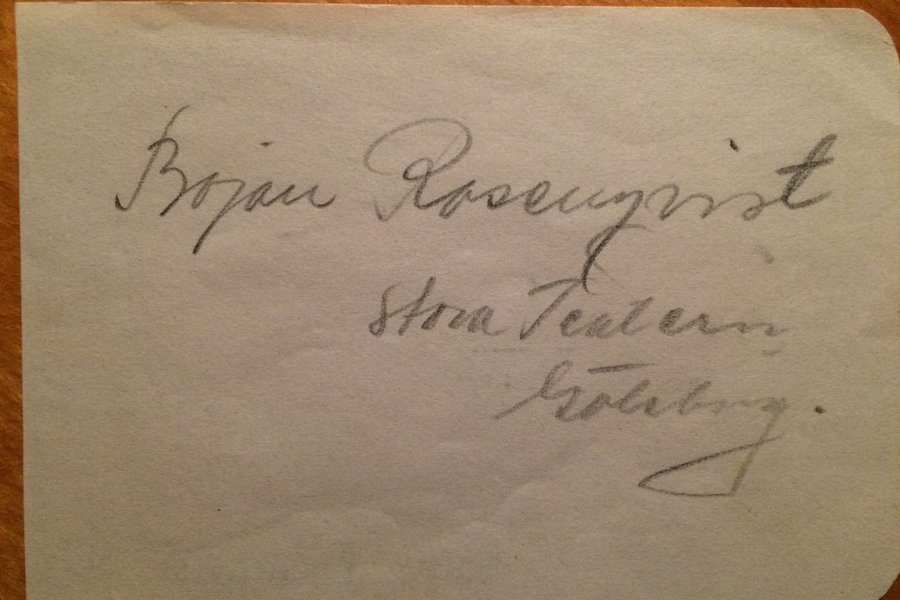 Bojan Rosenqvist
Stora Teatern
Göteborg.